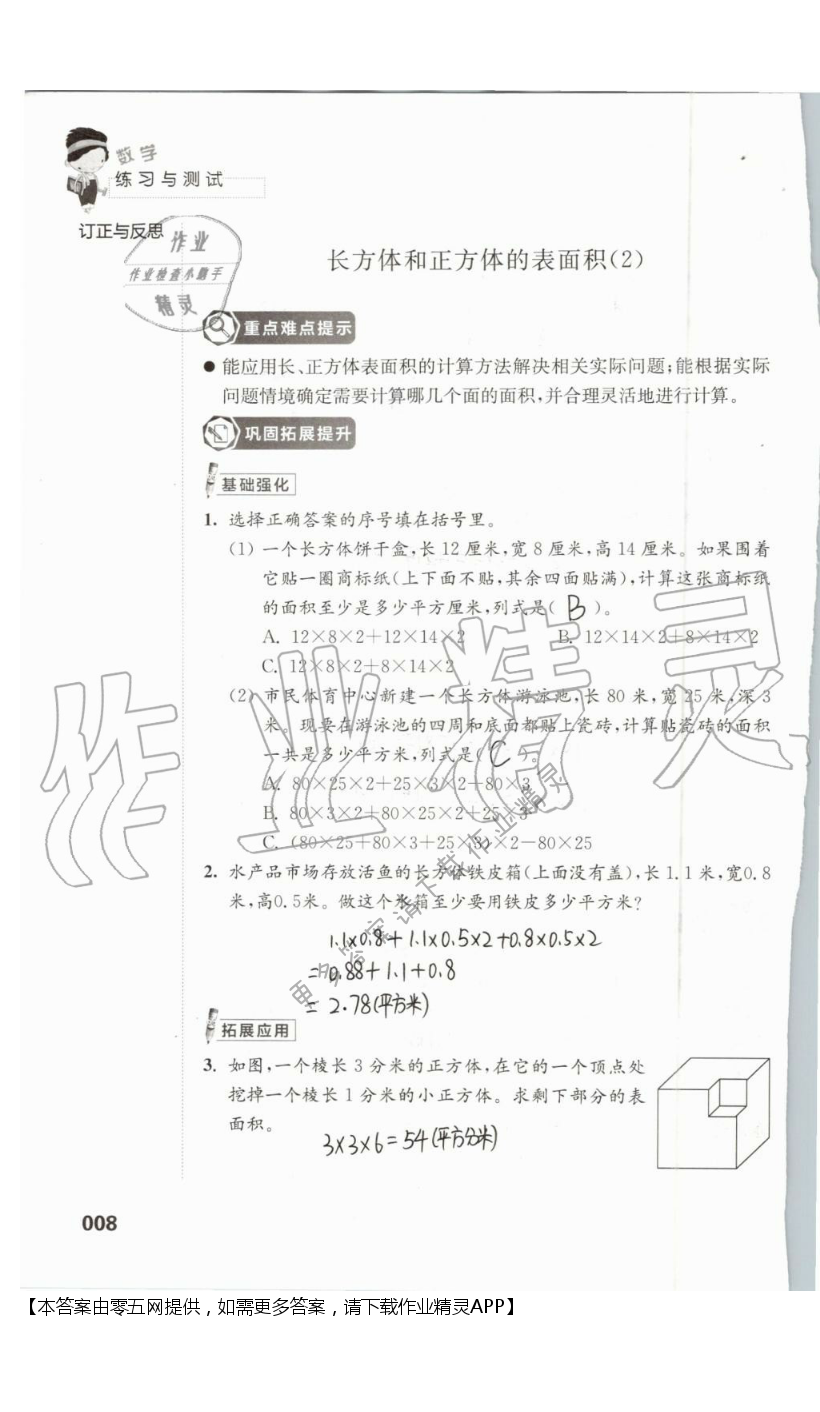 数学
练习与测试
订正与反思
作业
作业检查小助手
精灵
长方体和正方体的表面积(2)
重点难点提示
● 能应用长、正方体表面积的计算方法解决相关实际问题;能根据实际
问题情境确定需要计算哪几个面的面积,并合理灵活地进行计算。
巩固拓展提升
基础强化
1. 选择正确答案的序号填在括号里。
(1) 一个长方体饼干盒,长 12 厘米,宽 8 厘米,高 14 厘米。如果围着
它贴一圈商标纸(上下面不贴,其余四面贴满),计算这张商标纸
的面积至少是多少平方厘米,列式是( B )。
A. 12×8×2+12×14×2 B. 12×14×2+8×14×2
C. 12×8×2+8×14×2
(2) 市民体育中心新建一个长方体游泳池,长 80 米,宽 25 米,深 3
米。现要在游泳池的四周和底面都贴上瓷砖,计算贴瓷砖的面积
一共是多少平方米,列式是( C )。
A. 80×25×2+25×3×2+80×3
B. 80×3×2+80×25×2+25×3
C. (80×25+80×3+25×3)×2-80×25
2. 水产品市场存放活鱼的长方体铁皮箱(上面没有盖),长 1.1 米,宽0.8
米,高0.5米。做这个水箱至少要用铁皮多少平方米?
1.1×0.8+1.1×0.5×2+0.8×0.5×2
=0.88+1.1+0.8
=2.78(平方米)
拓展应用
3. 如图,一个棱长 3 分米的正方体,在它的一个顶点处
挖掉一个棱长 1 分米的小正方体。求剩下部分的表
面积。
3×3×6=54(平方分米)
008
作业精灵
更多答案请下载作业精灵
【本答案由零五网提供，如需更多答案，请下载作业精灵APP】